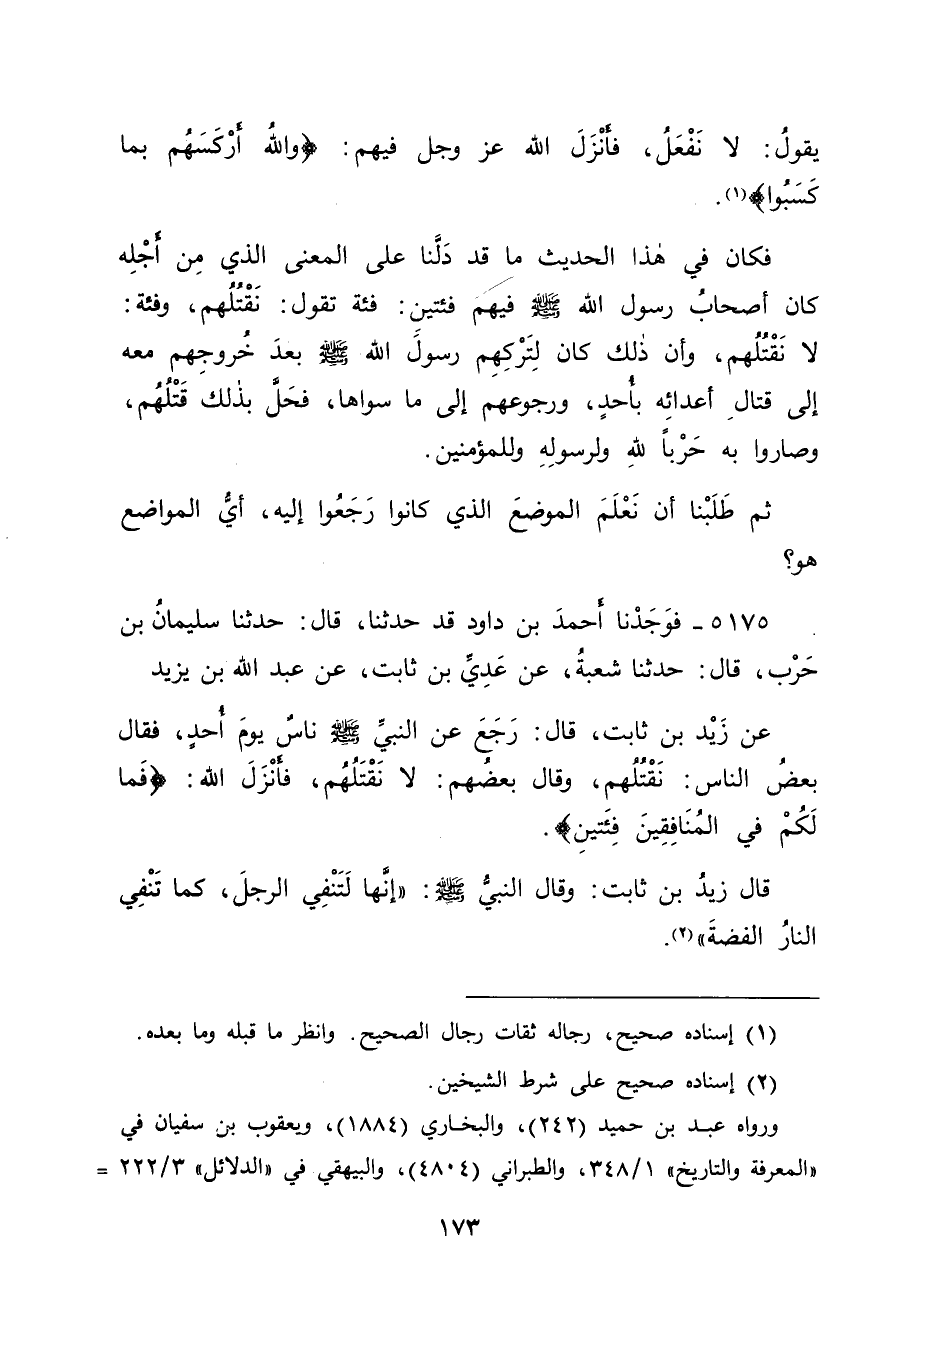 يقولُ: لا نَفْعَلُ، فأَنْزَلَ الله عز وجل فيهم: ﴿واللهُ أَرْكَسَهُم بما
كَسَبُوا﴾(١).
فكان في هٰذا الحديث ما قد دَلَّنا على المعنى الذي مِن أَجْلِه
كان أصحابُ رسول الله ﷺ فيهم فئتين: فئة تقول: نَقْتُلُهم، وفئة:
لا نَقْتُلُهم، وأن ذٰلك كان لِتَرْكِهم رسولَ الله ﷺ بعدَ خُروجِهم معه
إلى قتال أعدائِه بأُحدٍ، ورجوعهم إلى ما سواها، فحَلَّ بذٰلك قَتْلُهُم،
وصاروا به حَرْباً للهِ ولرسولِهِ وللمؤمنين.
ثم طَلَبْنا أن نَعْلَمَ الموضعَ الذي كانوا رَجَعُوا إليه، أيُّ المواضع
هو؟
٥١٧٥ ـ فوَجَدْنا أَحمدَ بن داود قد حدثنا، قال: حدثنا سليمانُ بن
حَرْب، قال: حدثنا شعبةُ، عن عَدِيِّ بن ثابت، عن عبد الله بن يزيد
عن زَيْد بن ثابت، قال: رَجَعَ عن النبيِّ ﷺ ناسٌ يومَ أُحدٍ، فقال
بعضُ الناس: نَقْتُلُهم، وقال بعضُهم: لا نَقْتُلُهُم، فأَنْزَلَ الله: ﴿فَما
لَكُمْ في المُنَافِقِينَ فِئَتينِ﴾.
قال زيدُ بن ثابت: وقال النبيُّ ﷺ: «إنَّها لَتَنْفِي الرجلَ، كما تَنْفِي
النارُ الفضةَ»(٢).
(١) إسناده صحيح، رجاله ثقات رجال الصحيح. وانظر ما قبله وما بعده.
(٢) إسناده صحيح على شرط الشيخين.
ورواه عبد بن حميد (٢٤٢)، والبخاري (١٨٨٤)، ويعقوب بن سفيان في
«المعرفة والتاريخ» ٣٤٨/١، والطبراني (٤٨٠٤)، والبيهقي في «الدلائل» ٢٢٢/٣ =
١٧٣